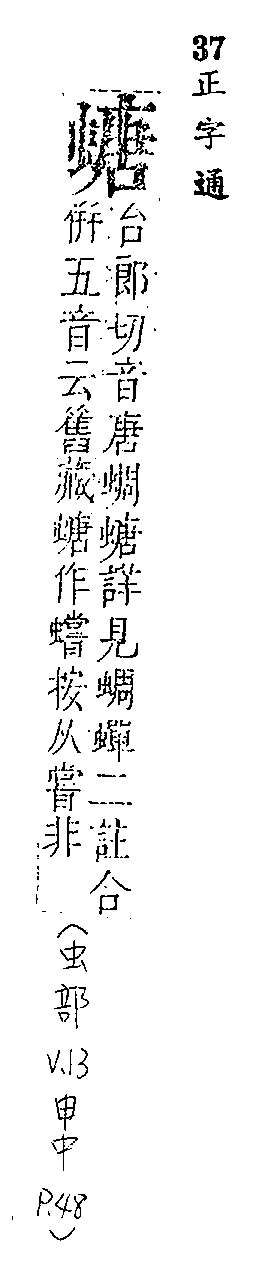 37正字通
螗
台郎切音唐蜩螗詳見蜩蟬二註合
併五音云舊藏螗作蟐按从嘗非
(虫部 V.13 申中 P.48)